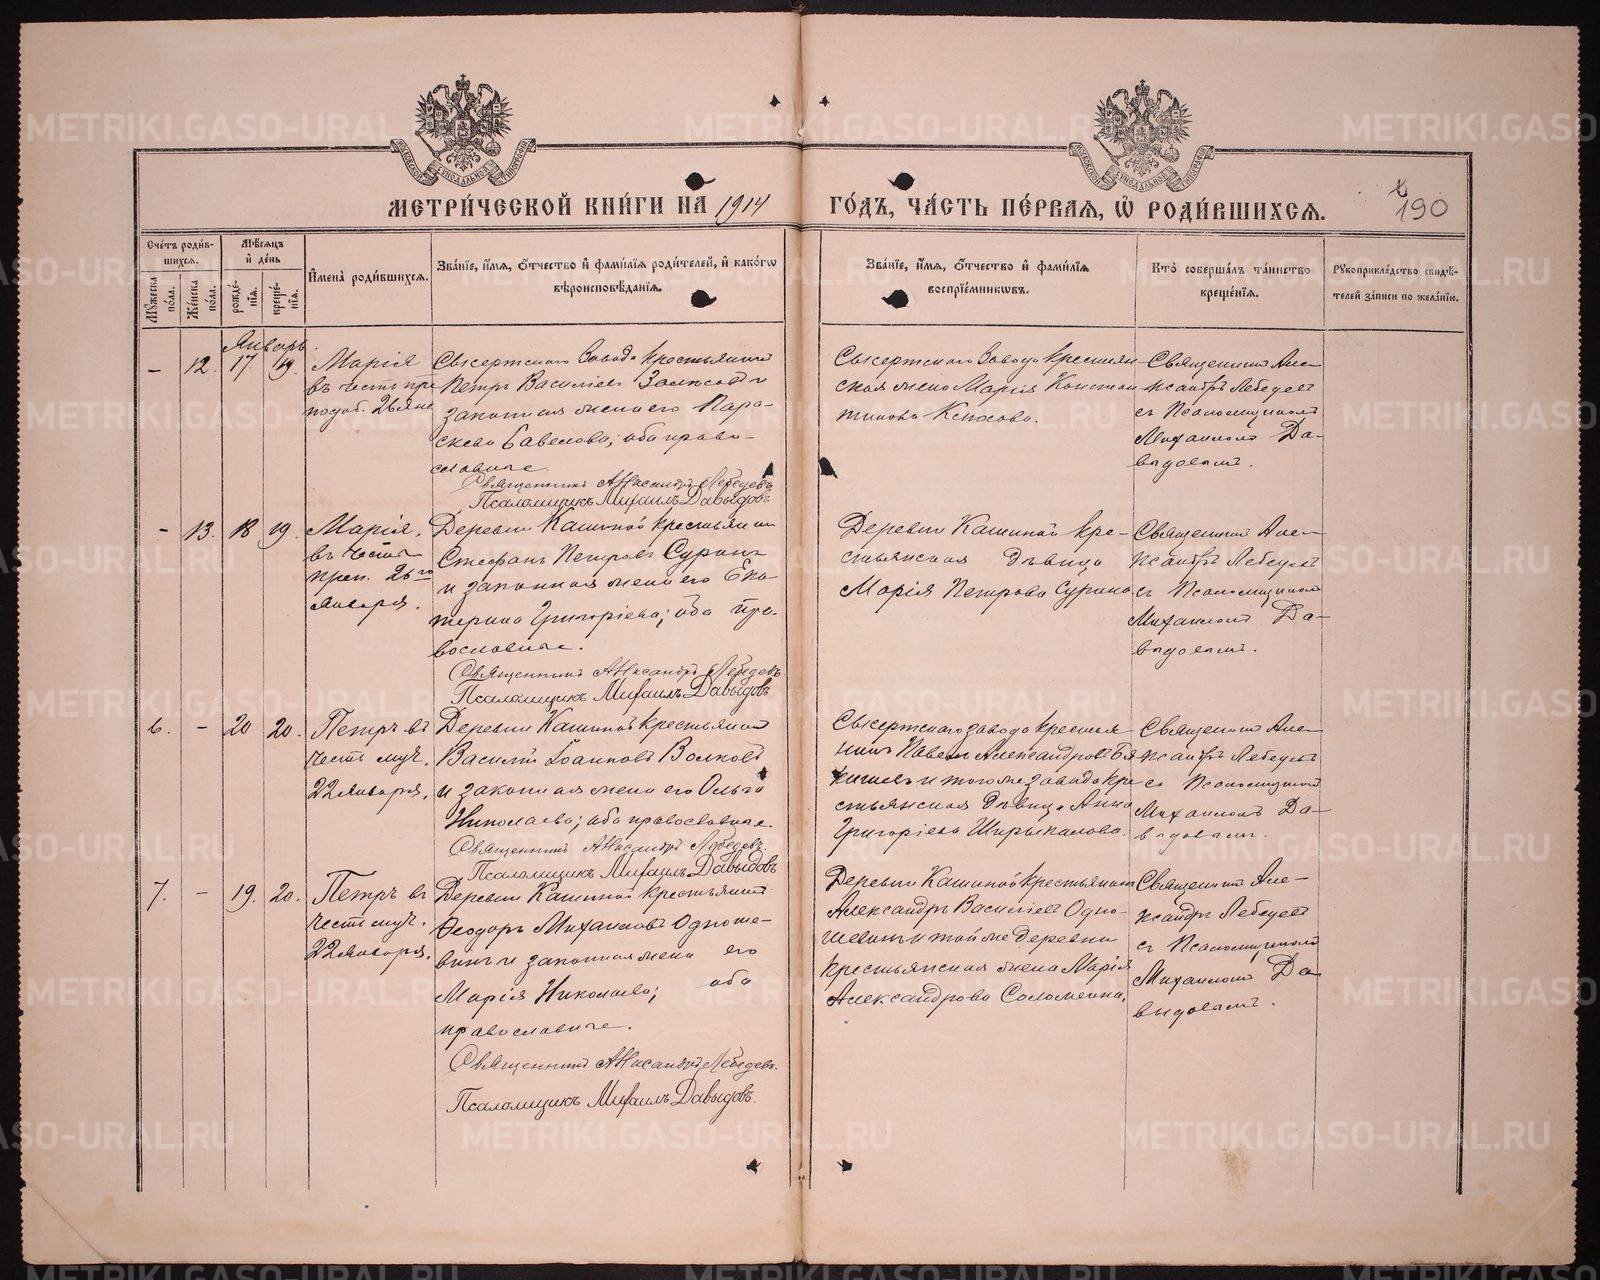 МЕТРИ́ЧЕСКОЙ КНИ́ГИ НА 1914 ГО́ДЪ, ЧА́СТЬ ПЕ́РВАЯ, Ѡ҆ РОДИ́ВШИХСЯ.
190
Сче́тъ роди́в-
шихся.
Мꙋ́жеска по́ла.
Же́нска по́ла.
Мѣ́сяцъ
и҆ де́нь
рожде́-
нїя.
креще́-
нїя.
И҆мена̀ роди́вшихся.
Зва́нїе, и҆́мя, ѻ҆́тчество и҆ фами́лїя роди́телей, и҆ како́гѡ
вѣроисповѣ́данїя.
Зва́нїе, и҆́мя, ѻ҆́тчество и҆ фами́лїя
воспрїе́мникѡвъ.
Кто̀ соверша́лъ та́инство
креще́нїя.
Рꙋкоприкла́дство свидѣ́-
телей за́писи по жела́нїю.
Январь
- 12. 17. 19.
Марія
въ честь пре
подоб. 26 янв
Сысертского Завода крестьянинъ
Петръ Василіев и
законная жена его Пара-
скева Савелова; оба право-
славные.
Священникъ Александръ Лебедевъ
Псаломщикъ Михаилъ Давыдовъ
Сысертского Завода крестьян
ская жена Марія Констан
тинова
Священникъ Але-
ксандръ Лебедевъ
съ Псаломщикомъ
Михаиломъ Да-
выдовымъ.
- 13. 18 19.
Марія,
въ честь
преп. 26го
января.
Деревни Кашиной крестьянинъ
Стефанъ Петровъ Суринъ
и законная жена его Ека-
терина Григоріева; оба пра-
вославные.
Священникъ Александръ Лебедевъ
Псаломщикъ Михаилъ Давыдовъ
Деревни Кашиной кре-
стьянская дѣвица
Марія Петрова Сурина
Священникъ Але-
ксандръ Лебедевъ
съ Псаломщикомъ
Михаиломъ Да-
выдовымъ.
6. - 20 20.
Петръ въ
честь муч.
22 января.
Деревни Кашиной крестьянинъ
Василій Іоанновъ Волковъ
и законная жена его Ольга
Николаева; оба православные.
Священникъ Александръ Лебедевъ.
Псаломщикъ Михаилъ Давыдовъ
Сысертского завода крестья
нинъ Павелъ Александровъ
и того же завода кре
стьянская дѣвица Анна
Григоріева Ширыкалова.
Священникъ Але-
ксандръ Лебедевъ
съ Псаломщикомъ
Михаиломъ Да-
выдовымъ.
7. - 19. 20.
Петръ въ
честь муч.
22 января.
Деревни Кашиной крестьянинъ
Ѳеодоръ Михаиловъ Одноше-
винъ и законная жена его
Марія Николаева; оба
православные.
Священникъ Александръ Лебедевъ.
Псаломщикъ Михаилъ Давыдовъ.
Деревни Кашиной крестьянинъ
Александръ Василіевъ Одно-
шевинъ и той же деревни
крестьянская жена Марія
Александрова Соломеина.
Священникъ Але-
ксандръ Лебедевъ
съ Псаломщикомъ
Михаиломъ Да-
выдовымъ.
METRIKI.GASO-URAL.RU